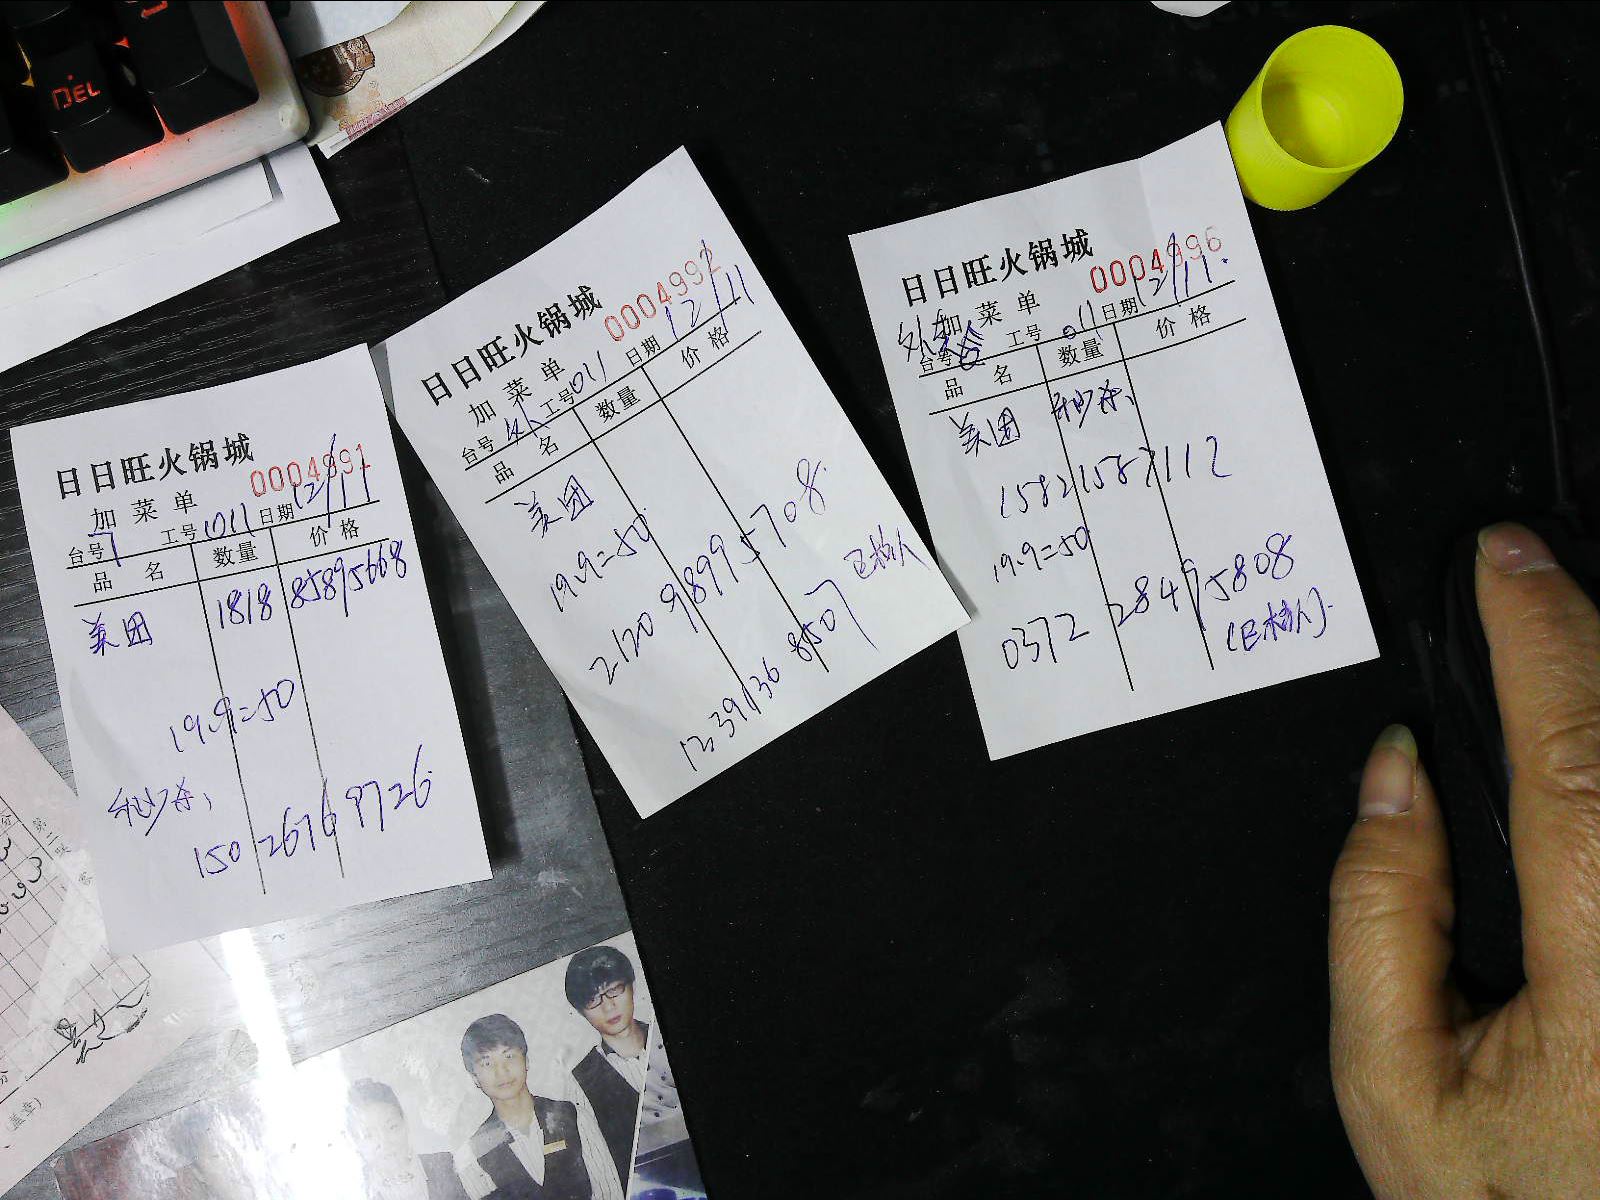 DEL
日日旺火锅城
0004991
加菜单
台号 7 工号 1011 日期 12/11
品名 数量 价格
美团 1818 85895668
19.9=50
秒杀
150 2676 9726
日日旺火锅城
0004992
加菜单
台号 外 工号 011 日期 12/11
品名 数量 价格
美团
19.9=50
2120 9899 5708
已核人
1239136 8507
日日旺火锅城
0004996
加菜单
外卖
台号 工号 011 日期 12/11
品名 数量 价格
美团 秒杀
1582 1587112
19.9=50
0372 2849 5808
(已核人)
第二联
盖章)